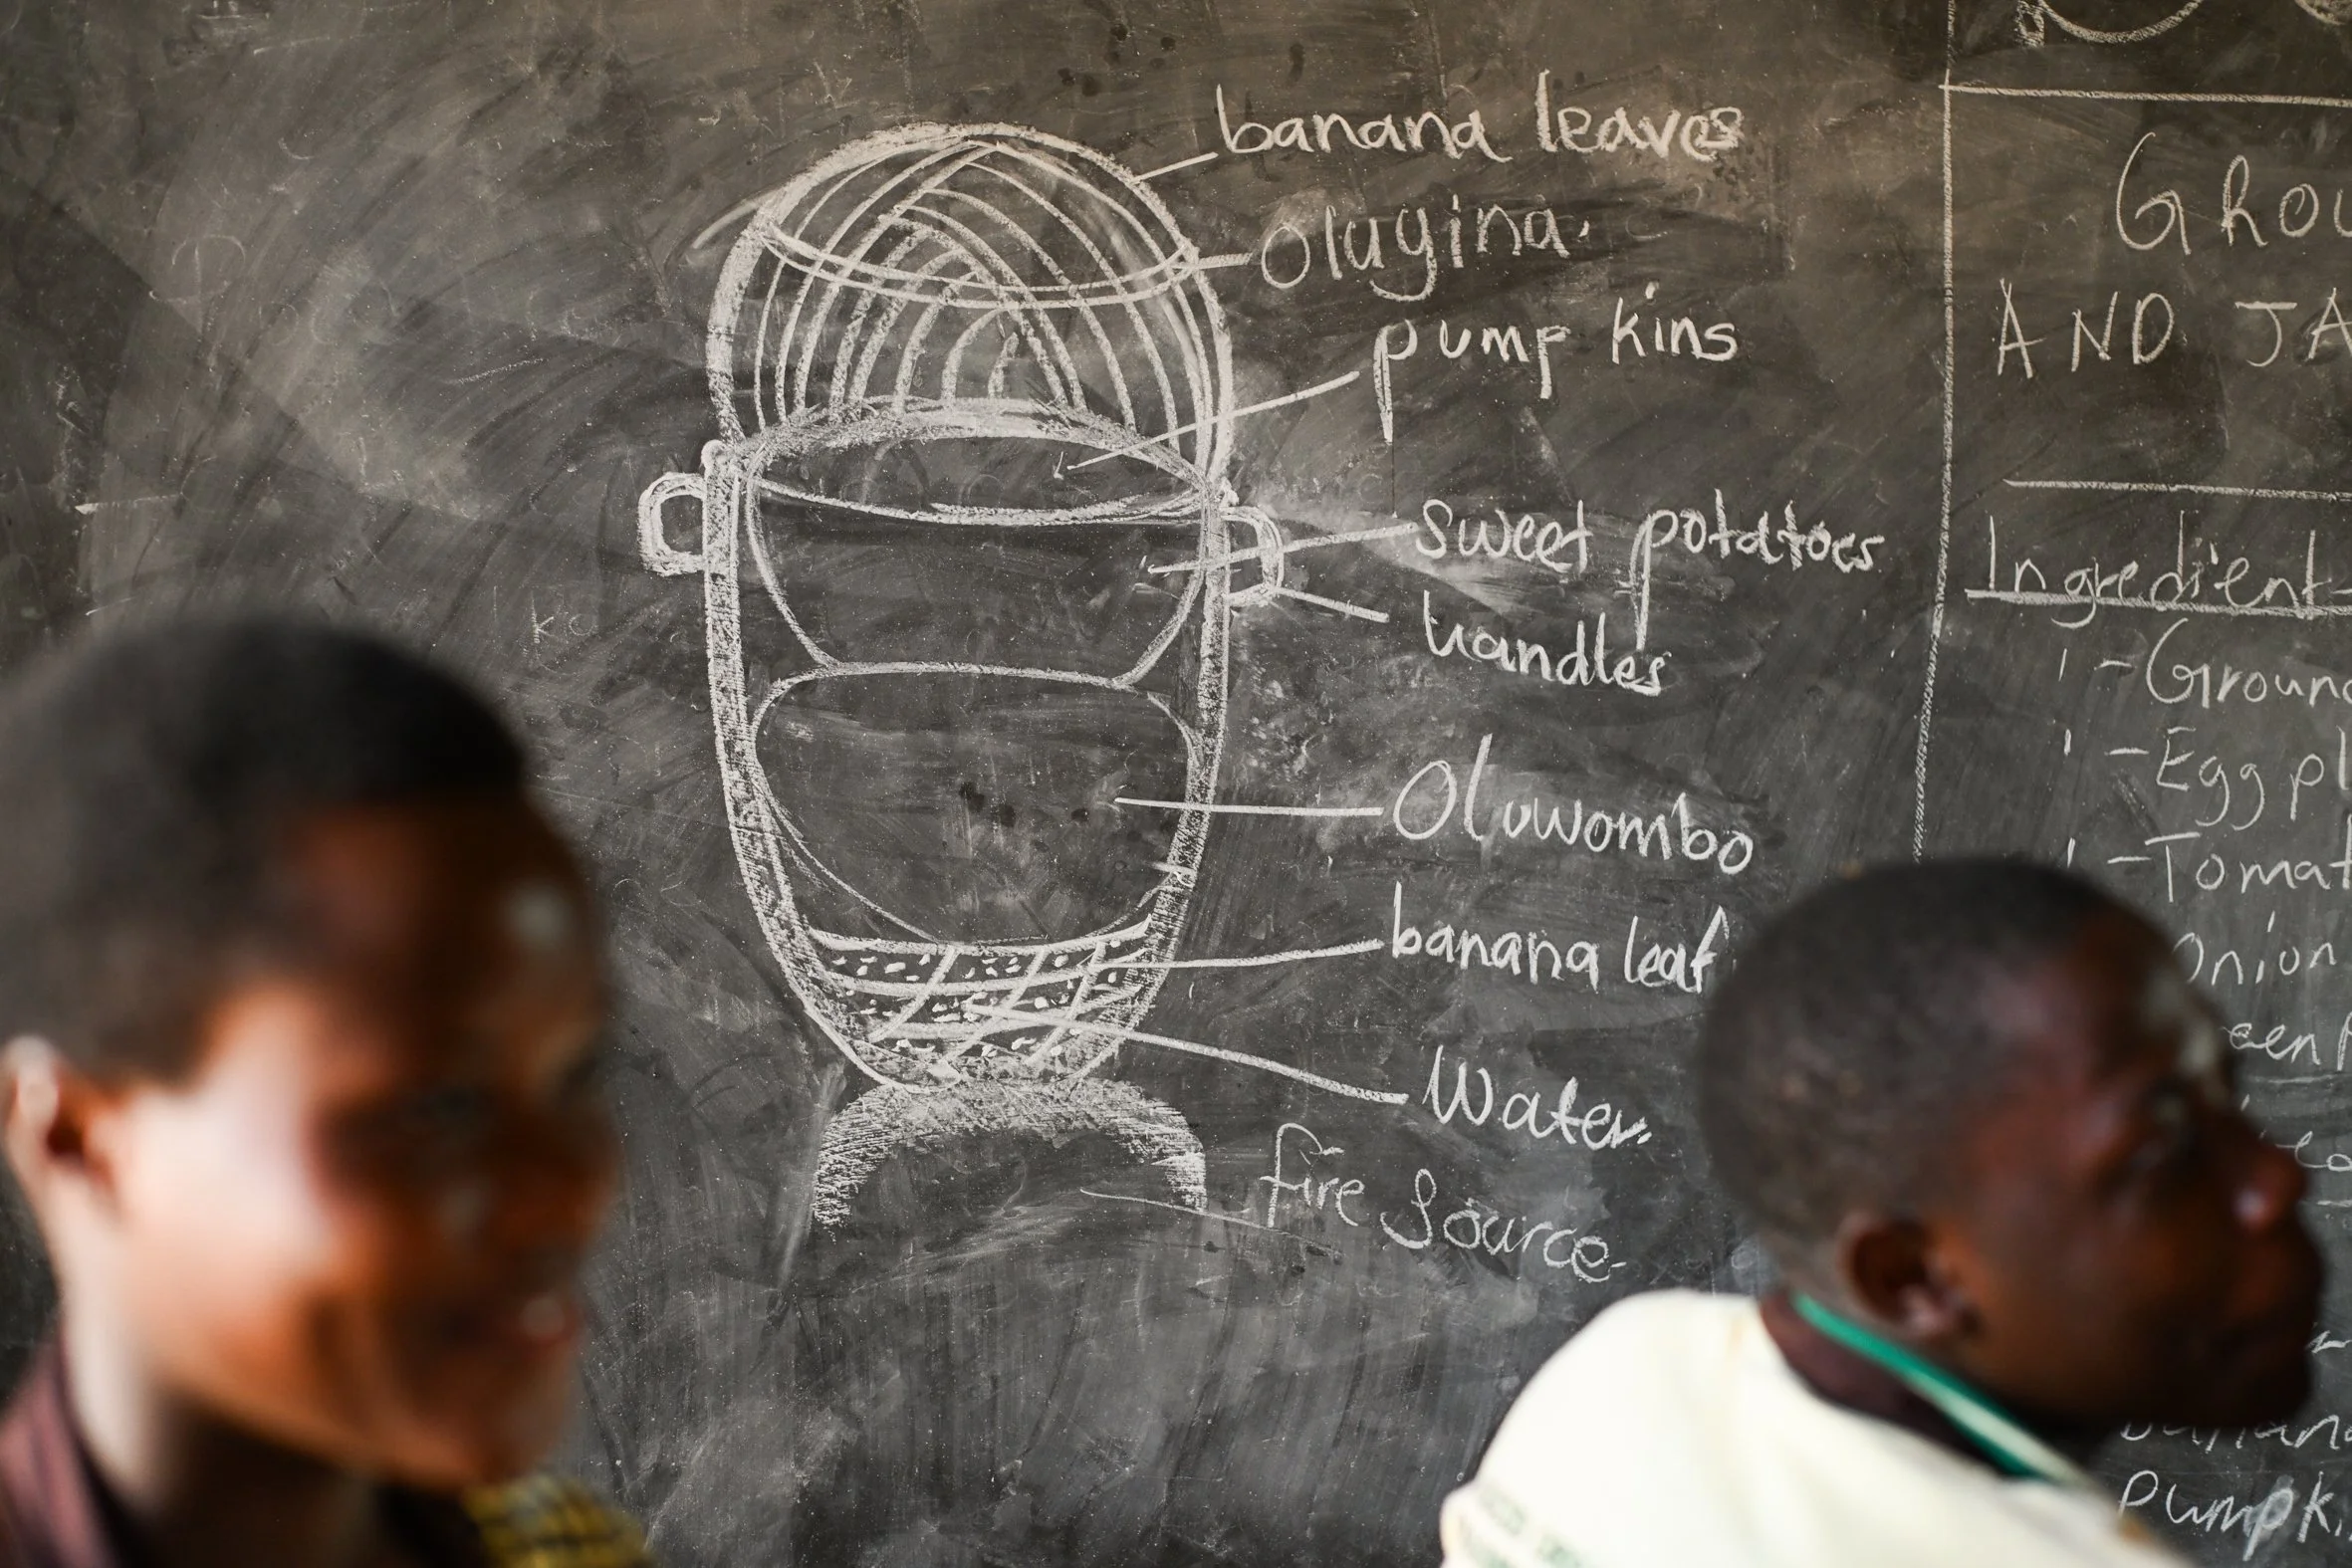 banana leaves
Olugina.
pumpkins
sweet potatoes
handles
Oluwombo
banana leaf
Water.
fire source
GROU
AND JA
Ingredient
- Ground
- Egg pl
- Tomat
Onion
een
Pumpk